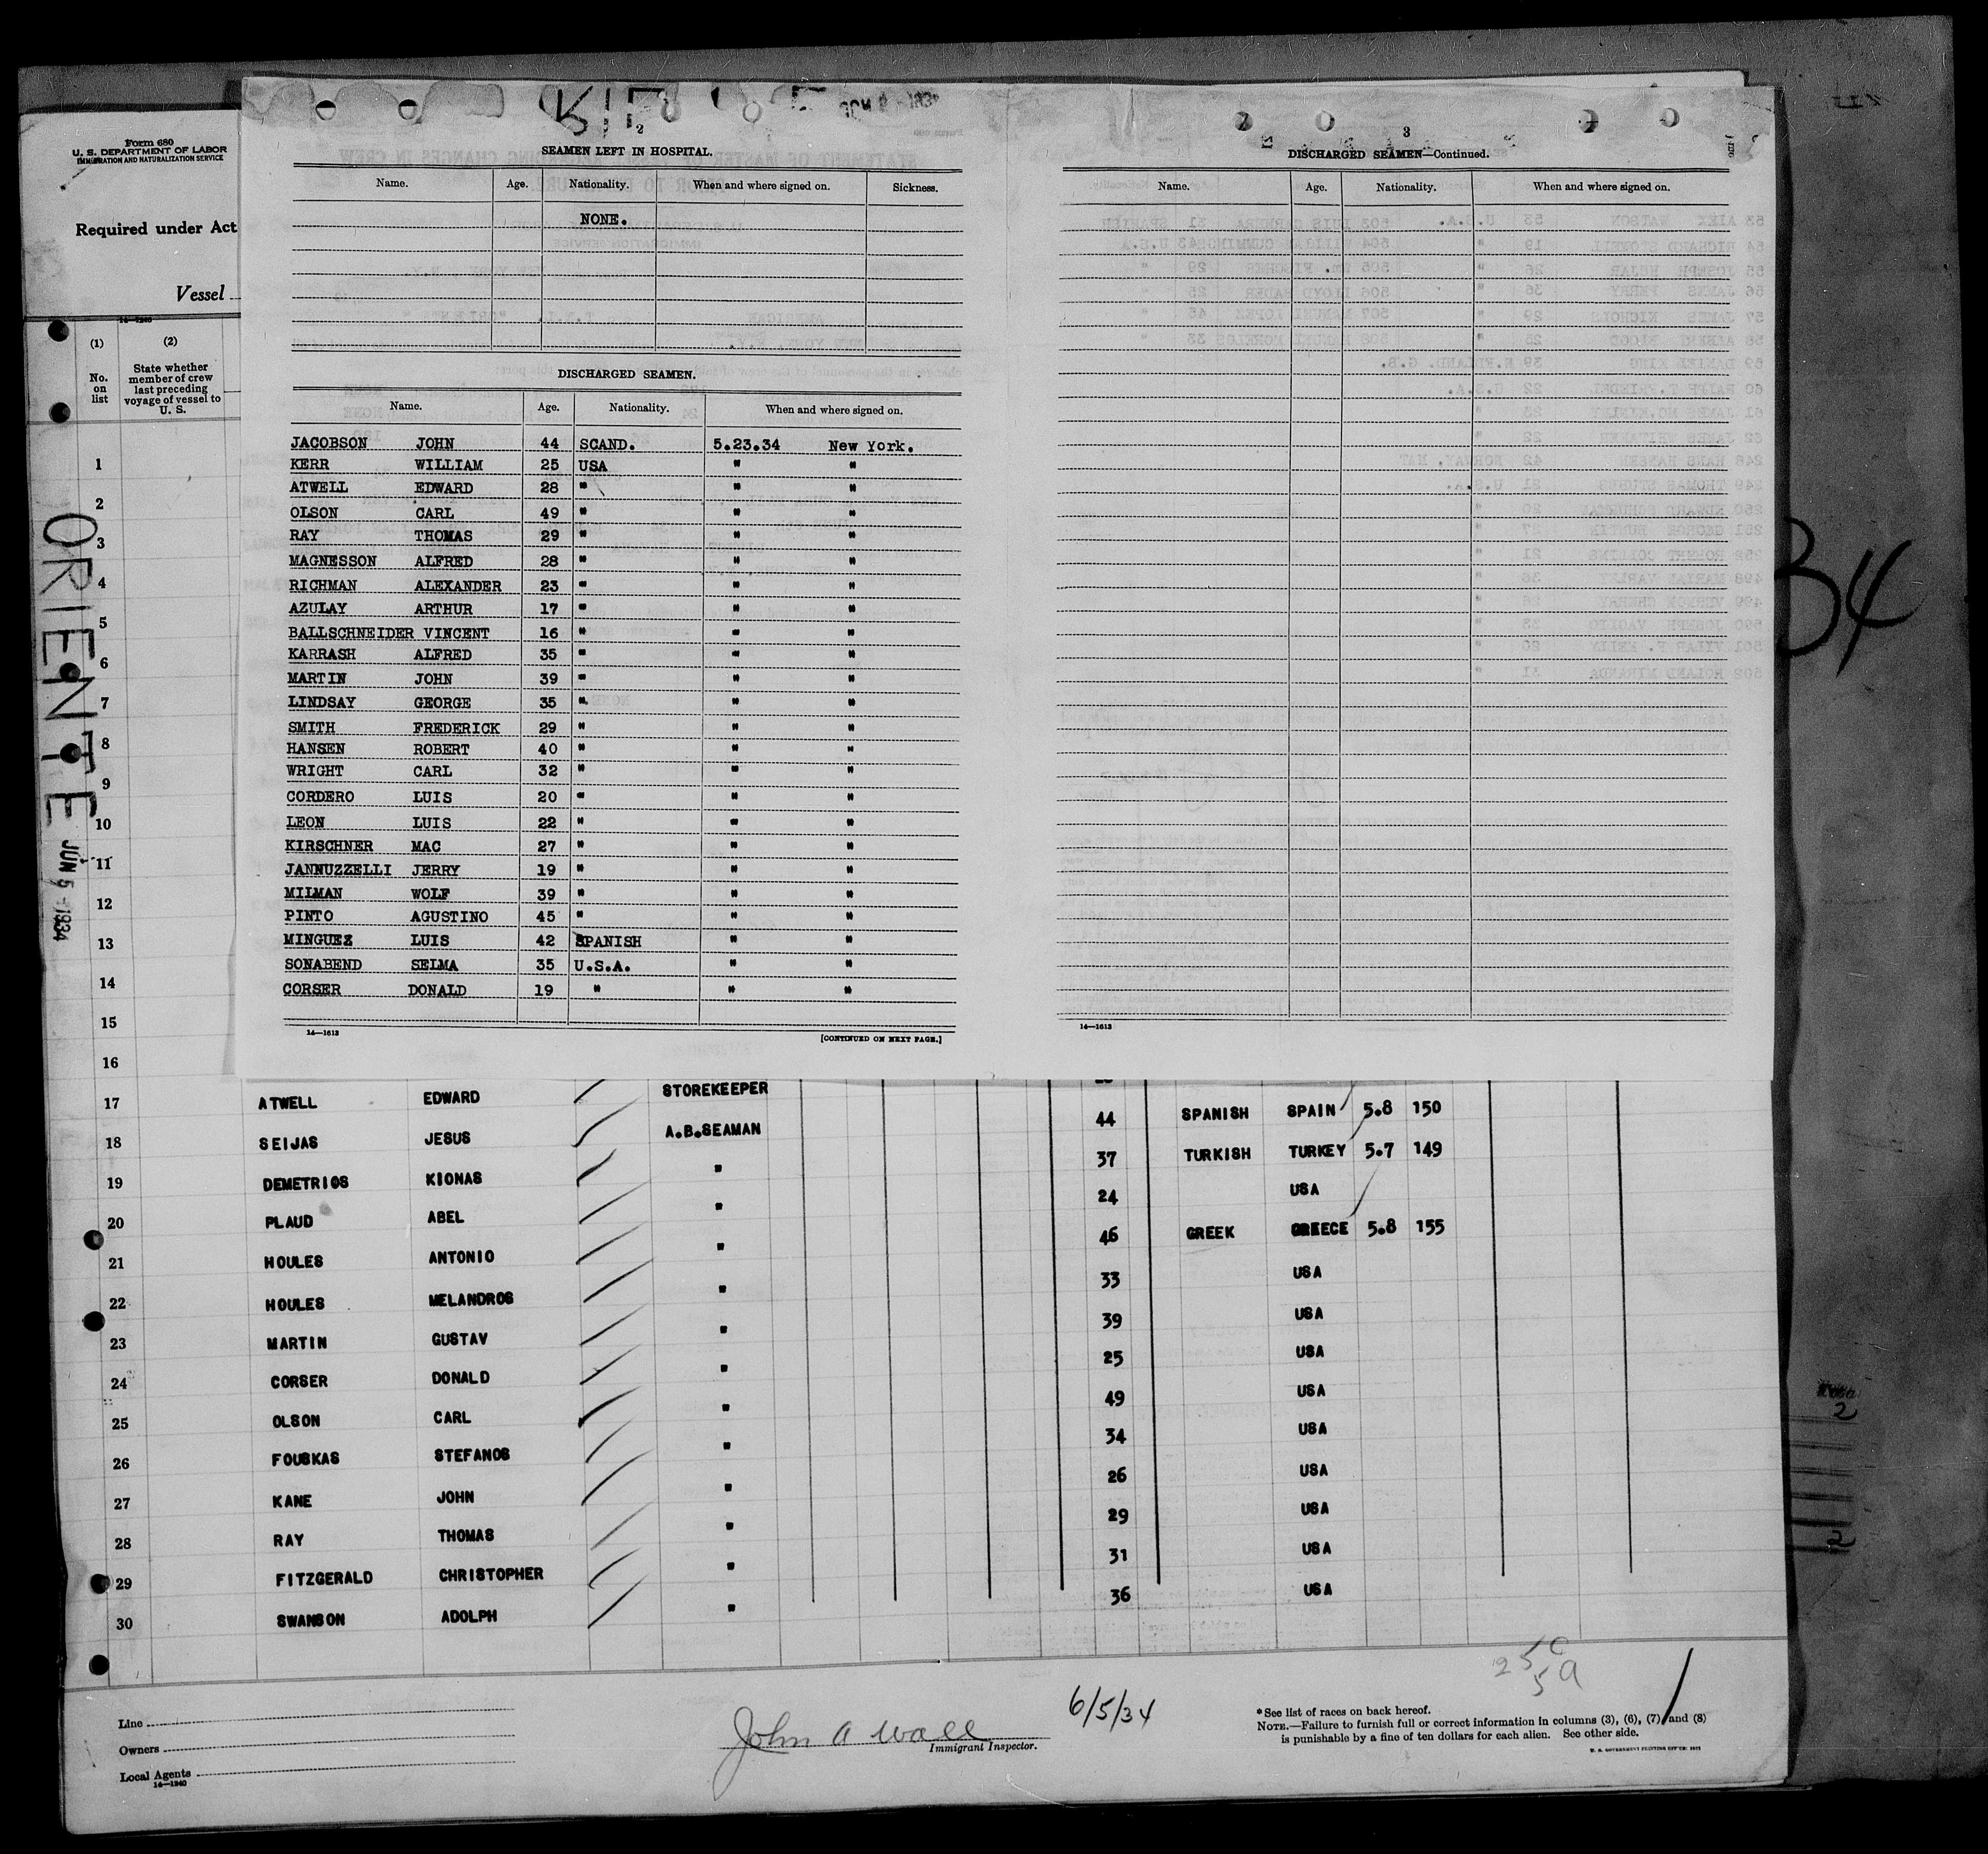 Form 680
U. S. DEPARTMENT OF LABOR
IMMIGRATION AND NATURALIZATION SERVICE
Required under Act
Vessel
14—1240
(1) (2)
No. on list
State whether member of crew last preceding voyage of vessel to U. S.
ORIENTE
JUN 5 - 1934
34
2
SEAMEN LEFT IN HOSPITAL.
Name. Age. Nationality. When and where signed on. Sickness.
NONE.
DISCHARGED SEAMEN.
Name. Age. Nationality. When and where signed on.
JACOBSON JOHN 44 SCAND. 5.23.34 New York.
KERR WILLIAM 25 USA " "
ATWELL EDWARD 28 " " "
OLSON CARL 49 " " "
RAY THOMAS 29 " " "
MAGNESSON ALFRED 28 " " "
RICHMAN ALEXANDER 23 " " "
AZULAY ARTHUR 17 " " "
BALLSCHNEIDER VINCENT 16 " " "
KARRASH ALFRED 35 " " "
MARTIN JOHN 39 " " "
LINDSAY GEORGE 35 " " "
SMITH FREDERICK 29 " " "
HANSEN ROBERT 40 " " "
WRIGHT CARL 32 " " "
CORDERO LUIS 20 " " "
LEON LUIS 22 " " "
KIRSCHNER MAC 27 " " "
JANNUZZELLI JERRY 19 " " "
MILMAN WOLF 39 " " "
PINTO AGUSTINO 45 " " "
MINGUEZ LUIS 42 SPANISH " "
SONABEND SELMA 35 U.S.A. " "
CORSER DONALD 19 " " "
14—1613
[CONTINUED ON NEXT PAGE.]
3
DISCHARGED SEAMEN—Continued.
Name. Age. Nationality. When and where signed on.
14—1613
1
2
3
4
5
6
7
8
9
10
11
12
13
14
15
16
17 ATWELL EDWARD STOREKEEPER
18 SEIJAS JESUS A.B.SEAMAN 44 SPANISH SPAIN 5.8 150
19 DEMETRIOS KIONAS " 37 TURKISH TURKEY 5.7 149
20 PLAUD ABEL " 24 USA
21 HOULES ANTONIO " 46 GREEK GREECE 5.8 155
22 HOULES MELANDROS " 33 USA
23 MARTIN GUSTAV " 39 USA
24 CORSER DONALD " 25 USA
25 OLSON CARL " 49 USA
26 FOUSKAS STEFANOS " 34 USA
27 KANE JOHN " 26 USA
28 RAY THOMAS " 29 USA
29 FITZGERALD CHRISTOPHER " 31 USA
30 SWANSON ADOLPH " 36 USA
Line
Owners
Local Agents
14—1240
John A Wall
Immigrant Inspector.
6/5/34
*See list of races on back hereof.
NOTE.—Failure to furnish full or correct information in columns (3), (6), (7) and (8)
is punishable by a fine of ten dollars for each alien. See other side.